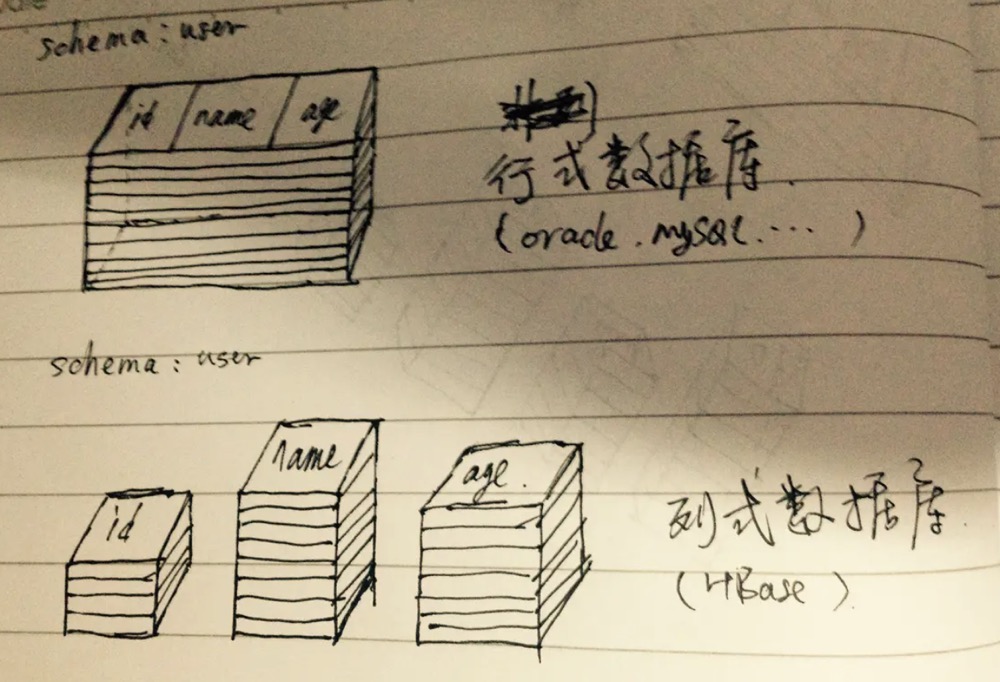 schema : user
id name age
行式数据库
(oracle . mySQL . ... )
schema : user
id
name
age .
列式数据库
(HBase)